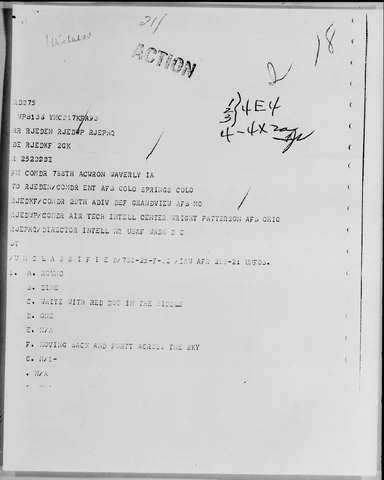 1 Witness
ACTION
18
4E4
RD075
WPB135
HR RJEDEN RJEDWP RJEPHQ
DE RJEDKF 2GK
R 252000Z
FM COMDR 788TH ACWRON WAVERLY IA
TO RJEDEN/COMDR ENT AFB COLO SPRINGS COLO
RJEDKF/COMDR 20TH ADIV DEF GRANDVIEW AFB MO
RJEDWP/COMDR AIR TECH INTELL CENTER WRIGHT PATTERSON AFB OHIO
RJEPHQ/DIRECTOR INTELL HQ USAF WASH D C
BT
U N C L A S S I F I E D AFR UNFOB.
A. ROUND
B. DIME
C. WHITE WITH RED DOT IN THE MIDDLE
D. ONE
E. N/A
F. MOVING BACK AND FORTH ACROSS THE SKY
G. N/A-
. N/A